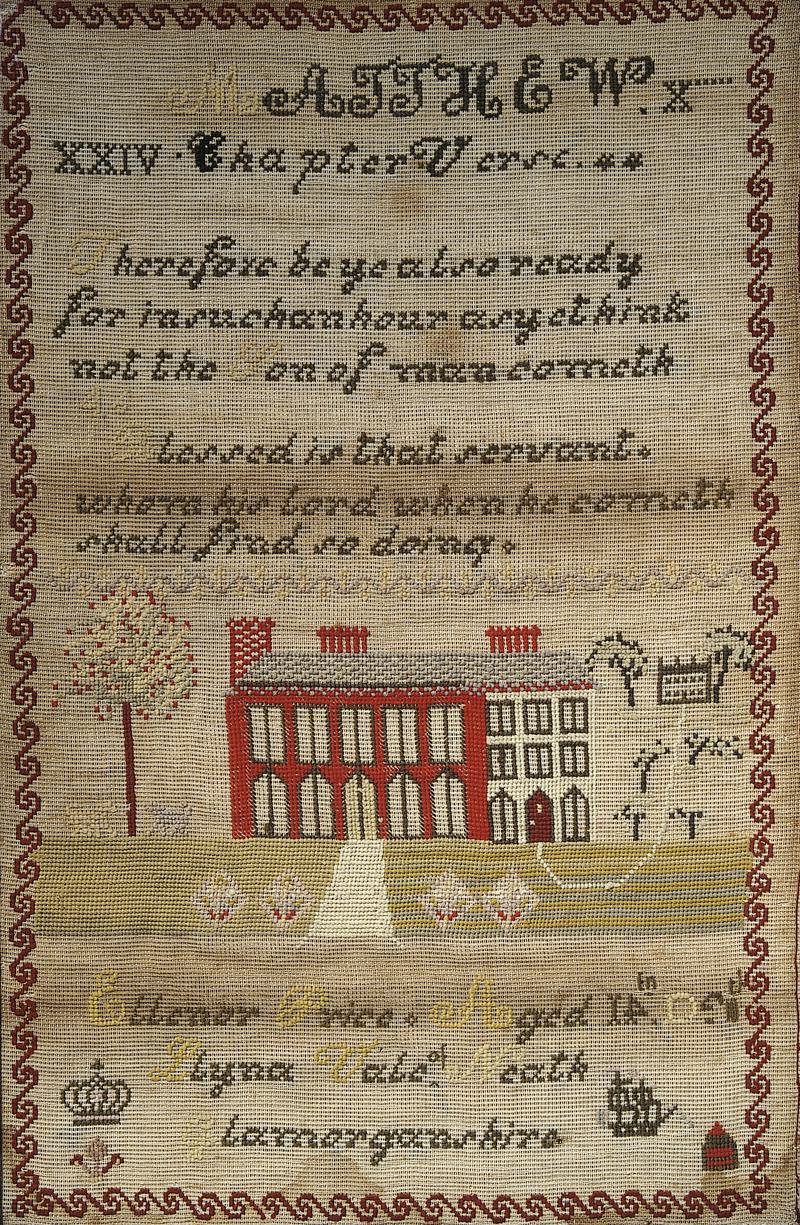 MATTHEW. X
XXIV. Chapter Verse. 44
Therefore be ye also ready
for in such an hour as ye think
not the Son of man cometh
46
Blessed is that servant.
whom his lord when he cometh
shall find so doing.
Ellenor Price. Aged 14. In
Llyna Vale of Neath
Glamorganshire